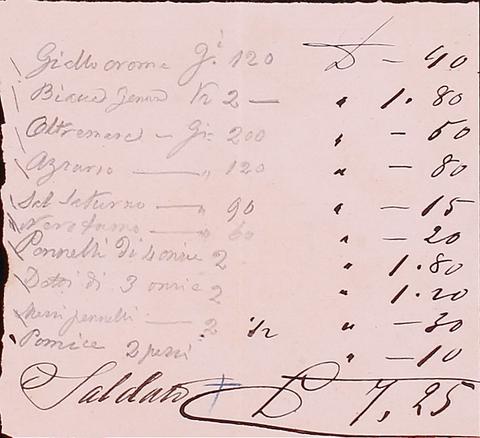 Giallo crome Gi 120 £ — 40
Biacca Jenus K 2 — " 1.80
Oltremare — Gi. 200 " — 60
Azzurro — " 120 " — 80
Sal Saturno — " 90 " — 15
Nero fumo — " 60 " — 20
Pennelli di 4 oncie 2 " 1.80
Detti di 3 oncie 2 " 1.20
Mezzi pennelli — 2 " — 30
Pomice 2 pezzi " — 10
Saldato £ 7,25